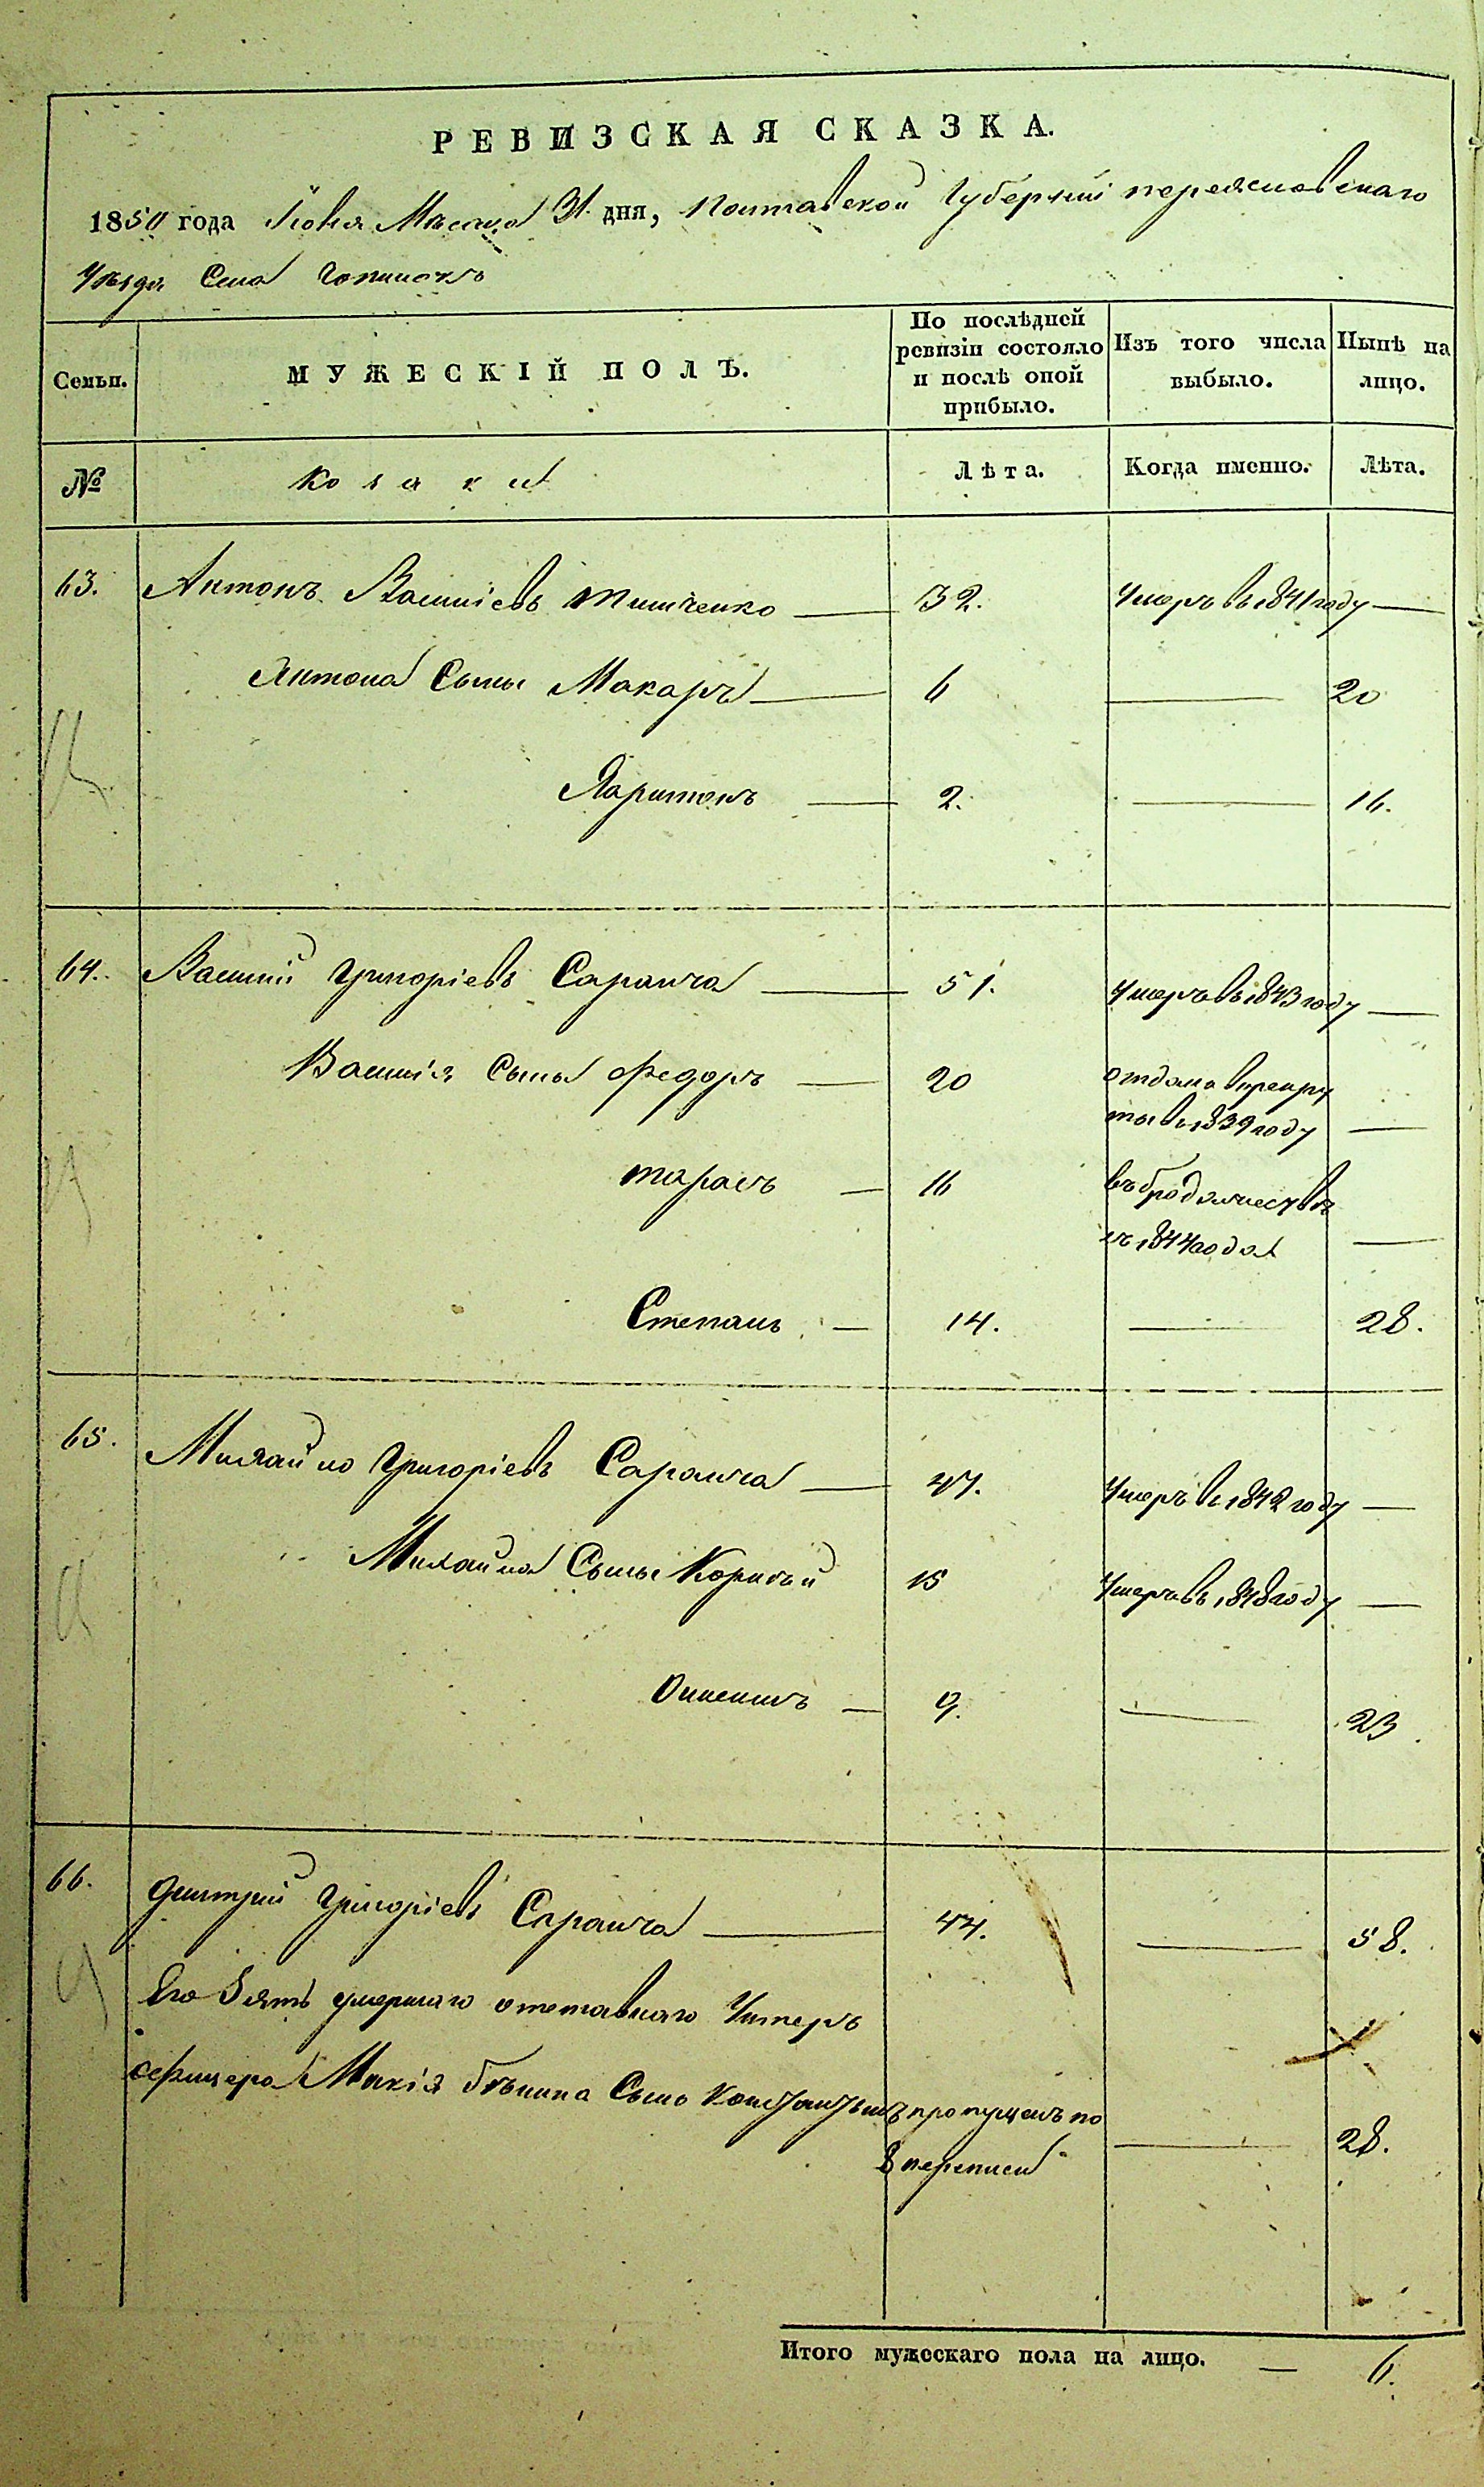 РЕВИЗСКАЯ СКАЗКА.
1850 года Іюня Мѣсяца 31 дня, Полтавской Губерніи переясловскаго
Уѣзда Села
Семьи. МУЖЕСКІЙ ПОЛЪ. По послѣдней ревизіи состояло и послѣ оной прибыло. Изъ того числа выбыло. Нынѣ на лицо.
№ Козаки Лѣта. Когда именно. Лѣта.
63. Антонъ Василіевъ Тимченко — 32. Умеръ въ 1841 году —
Антона Сыны Макаръ — 6 — 20
Харитонъ — 2. — 16.
64. Василій Григоріевъ Саранча — 51. Умеръ въ 1843 году —
Василія Сыны Федоръ — 20 отданъ в рекру
ты въ 1839 году —
Тарасъ — 16 въ бродяжествѣ
съ 1844 года —
Степанъ — 14. — 28.
65. Михайло Григоріевъ Саранча — 47. Умеръ въ 1842 году —
Михайла Сыны Корнѣй 15 Умеръ въ 1848 году —
— 9. — 23
66. Дмитрій Григоріевъ Саранча — 44. — 58.
Его Зять умершаго отставнаго Унтеръ
офицера Сынъ Константинъ пропущенъ по
8 переписи — 28.
Итого мужескаго пола на лицо. — 6.